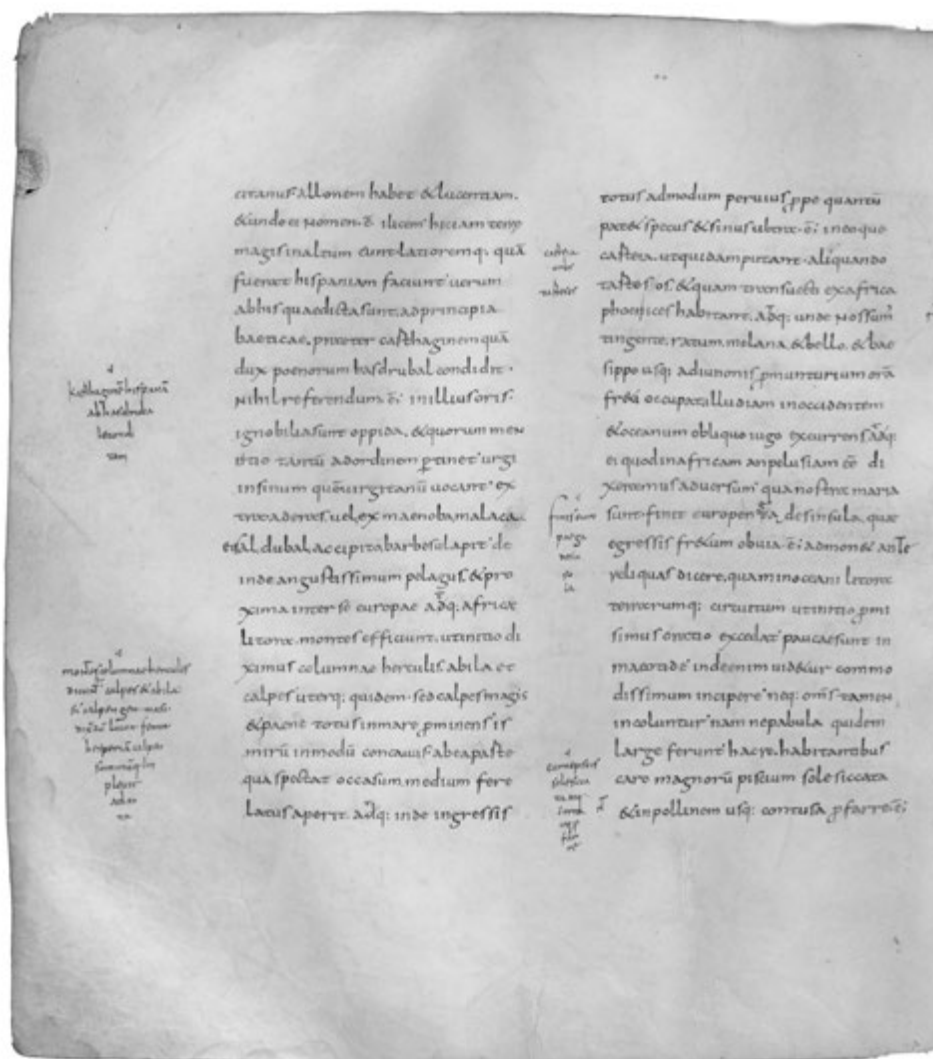 citanus allonem habet & lucentiam.
& unde ei Nomen. ē ilicem hic iam terrę
magis in altum eunt. latioremq; quā
fuerat hispaniam faciunt uerum
abhis quae dicta sunt, ad principia
baeticae, praeter carthaginem quā
dux poenorum hasdrubal condidit.
Nihil referendum. ē; in illius oris.
ignobilia sunt oppida, & quorum men
titio tantū ad ordinem ptinet urgi
in sinum quē uirgitanū uocant. ex
tra adera suel, ex maenoba malaca
sal, dubal, accipit a barbesul aperit de
inde angustissimum pelagus, & pro
xima inter se europae adq; africae
litora. montes efficiunt, ut initio di
ximus columnae herculis, abila et
calpes uterq; quidem. sed calpes magis
& paene totus in mare pminens is
mirū in modū concauus. ab ea parte
qua spectat occasum, medium fere
latus aperit. adq; inde ingressis
kathaginē hispanā
ab hasdruba
le cond
tam
montes columnae herculis
dicunt calpes & abila
totus admodum peruius, ppe quantū
pat& specus & sinus ultra. ē; in eoque
carteia, ut quidam putant. aliquando
tartessos, & quam transuecti ex africa
phoenices habitant, adq; unde Nos sum
tingente, ratum, melaria, & bello, & bae
sippo usq; ad iunonis pmunturium orā
freti occupat illud iam in occidentem
& oceanum obliquo iugo excurrens adq;
ei quod in africam anpelusiam eē di
xeramus aduersum qua nostra maria
sunt. finit europen. de insula, quae
egressis fr&um obuia. ē; admon& ante
reliquas dicere, quam in oceani litora
terrarumq; circuitum ut initio pmi
simus oratio excedat paucae sunt in
maeotide inde enim uid&ur commo
dissimum incipere neq; omīs tamen
incoluntur nam ne pabula quidem
large ferunt hac re, habitantibus
caro magnorū piscium sole siccata
& in pollinem usq; contusa p farre. ē;